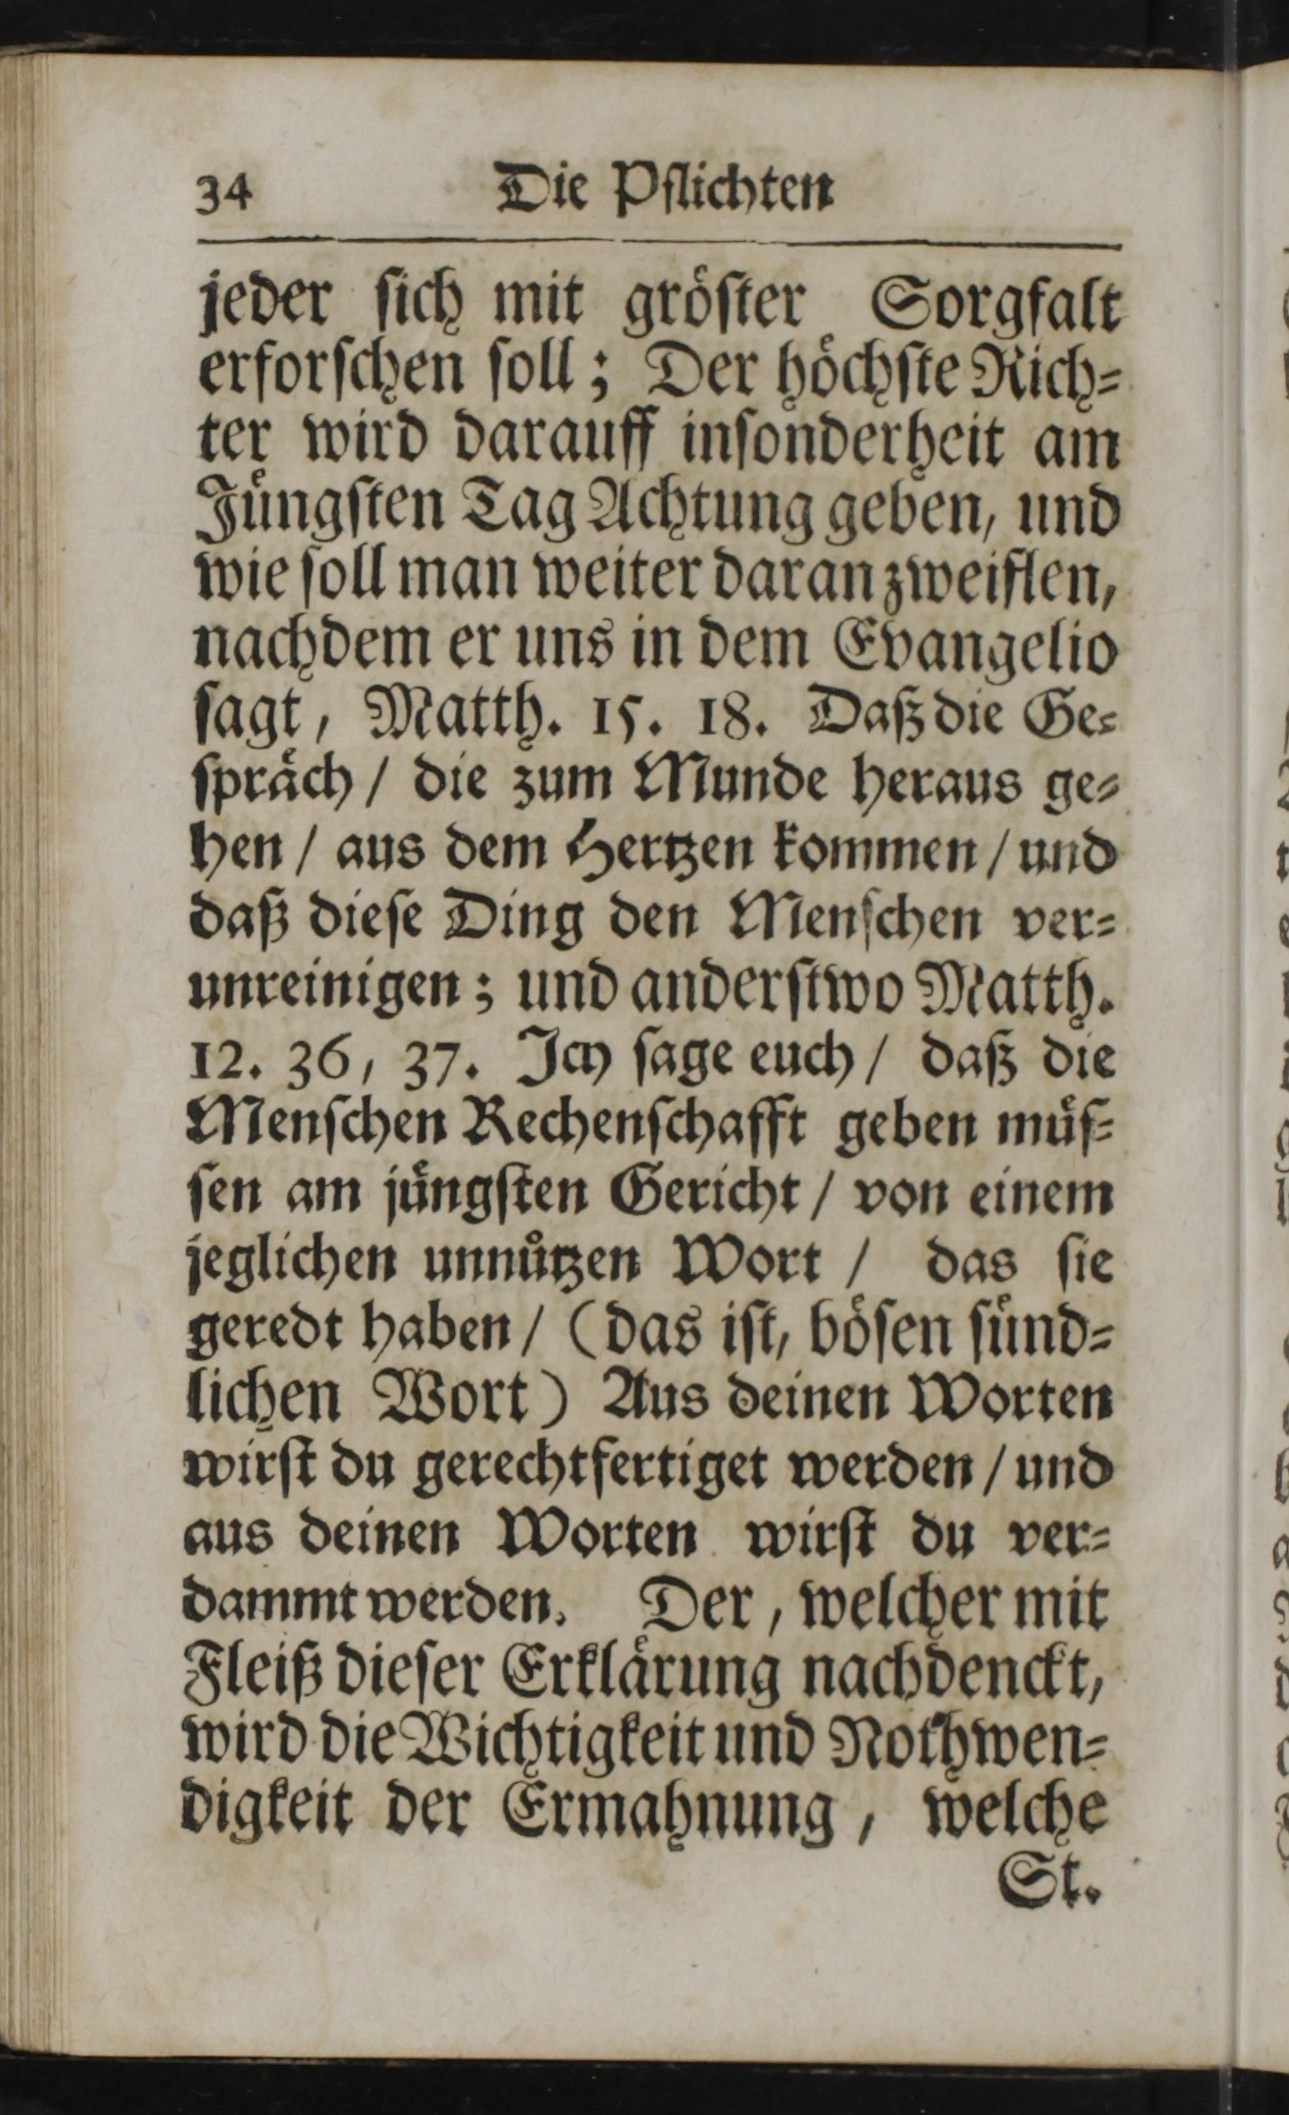 34 Die Pflichten
jeder sich mit gröster Sorgfalt
erforschen soll; Der höchste Rich-
ter wird darauff insonderheit am
Jüngsten Tag Achtung geben, und
wie soll man weiter daran zweiflen,
nachdem er uns in dem Evangelio
sagt, Matth. 15. 18. Daß die Ge-
spräch / die zum Munde heraus ge-
hen / aus dem Hertzen kommen / und
daß diese Ding den Menschen ver-
unreinigen; und anderstwo Matth.
12. 36, 37. Ich sage euch / daß die
Menschen Rechenschafft geben müs-
sen am jüngsten Gericht / von einem
jeglichen unnützen Wort / das sie
geredt haben / (das ist, bösen sünd-
lichen Wort) Aus deinen Worten
wirst du gerechtfertiget werden / und
aus deinen Worten wirst du ver-
dammt werden. Der, welcher mit
Fleiß dieser Erklärung nachdenckt,
wird die Wichtigkeit und Nothwen-
digkeit der Ermahnung, welche
St.